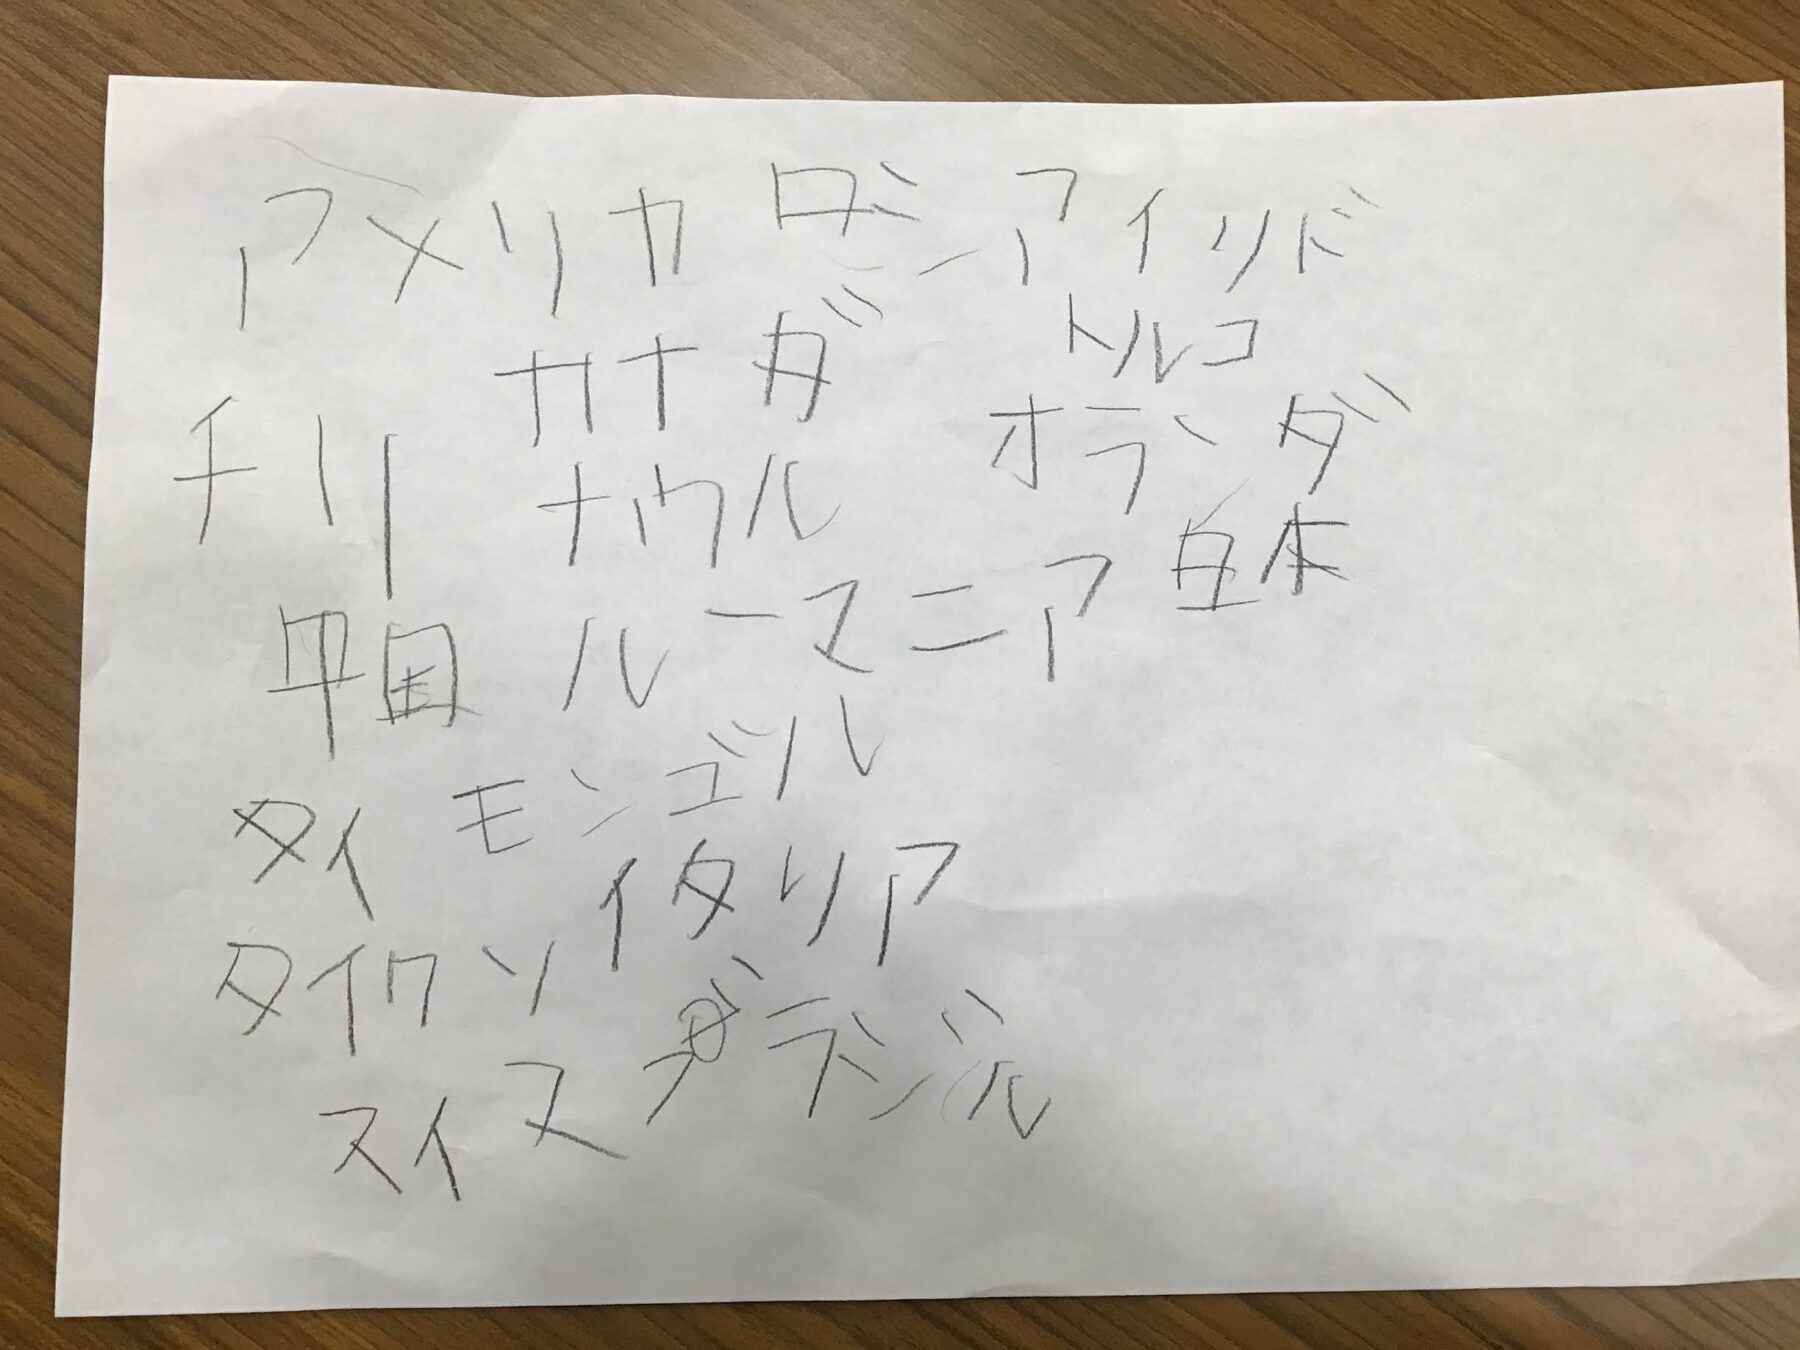 アメリカ ロシア イリド
カナダ トルコ
チリ ナウル オランダ
中国 ルーマニア 日本
タイ モンゴル
タイワン イタリア
スイス ブラジル